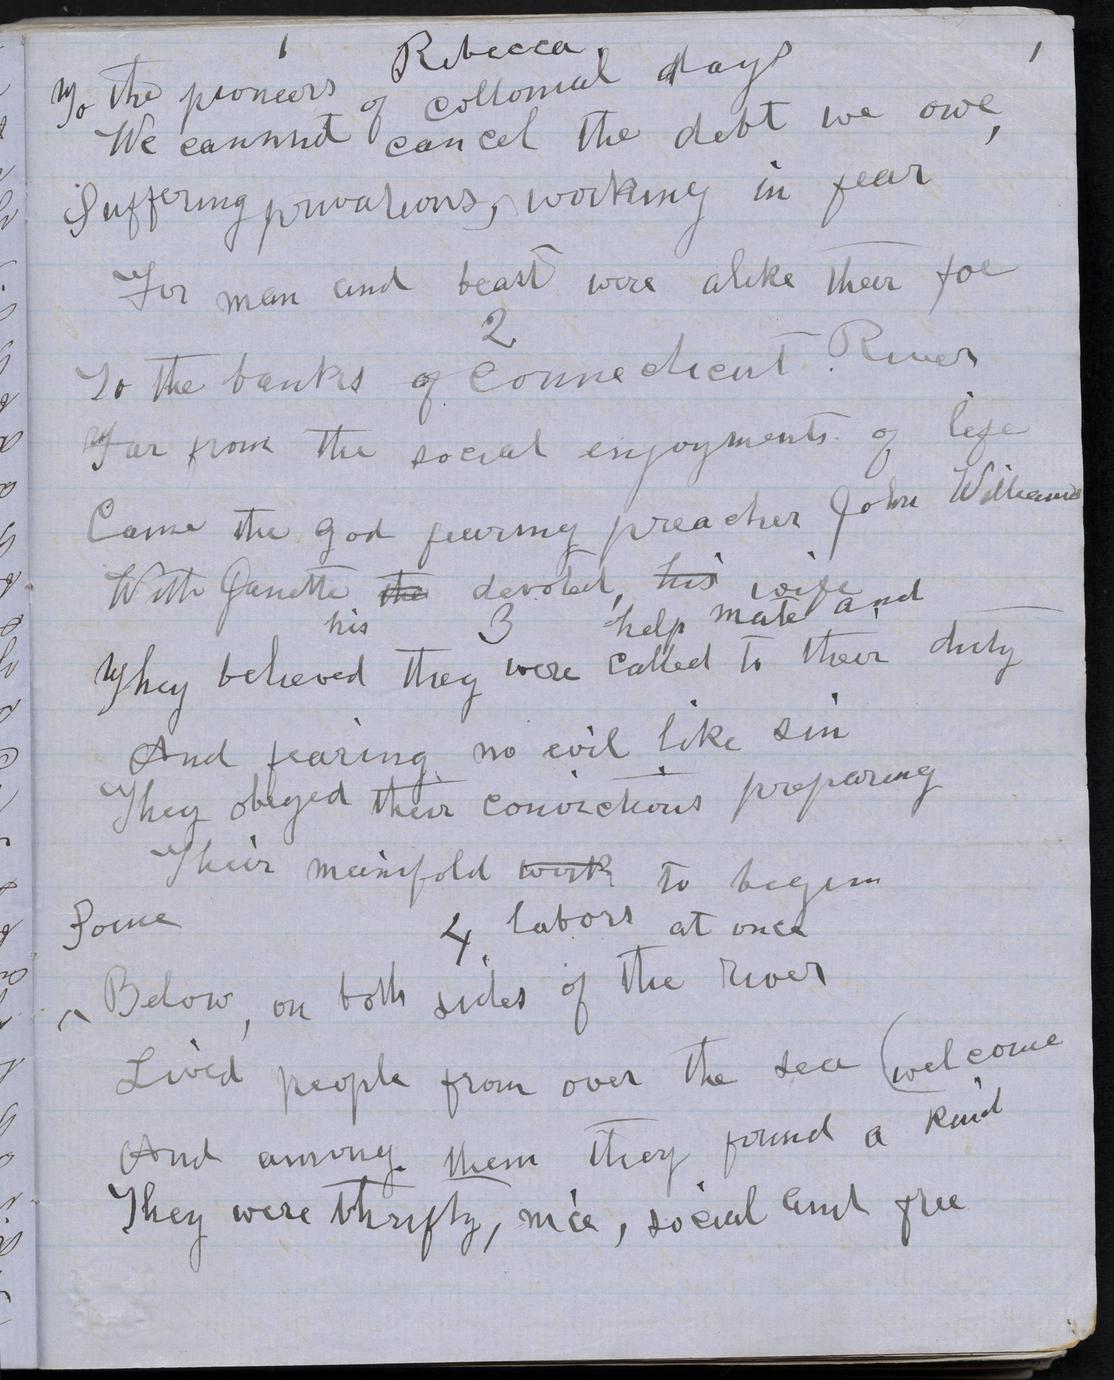 1 Rebecca. 1
To the pioneers of collonial days
We cannot cancel the debt we owe,
Suffering privations, working in fear
For man and beast were alike their foe
2
To the banks of Connecticut River
Far from the social enjoyments of life
Came the god fearing preacher John Williams
With Janette the devoted, his wife
his 3 help mate and
They believed they were called to their duty
And fearing no evil like sin
They obeyed their convictions preparing
Their manifold work to begin
Some 4. labors at once
^ Below, on both sides of the river
Lived people from over the sea (welcome
And among them they found a kind
They were thrifty, nice, social and free